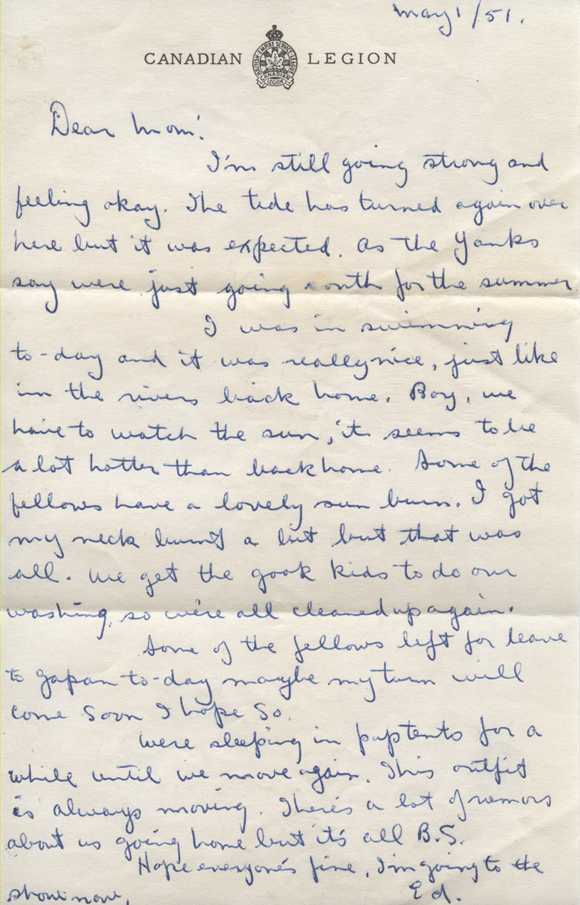 may 1/51.
CANADIAN LEGION
Dear Mom!
I'm still going strong and
feeling okay. The tide has turned again over
here but it was expected. As the Yanks
say were just going south for the summer.
I was in swimming
to-day and it was really nice, just like
inn the rivers back home. Boy, we
have to watch the sun, it seems to be
a lot hotter than back home. Some of the
fellows have a lovely sun burn. I got
my neck burnt a bit but that was
all. We get the gook kids to do our
washing, so we're all cleaned up again.
Some of the fellows left for leave
to Japan to-day maybe my turn will
come soon I hope so.
were sleeping in puptents for a
while until we move again. This outfit
is always moving. There's a lot of rumors
about us going home but it's all B.S.
Hope everyone's fine, I'm going to the
show now.
Ed.